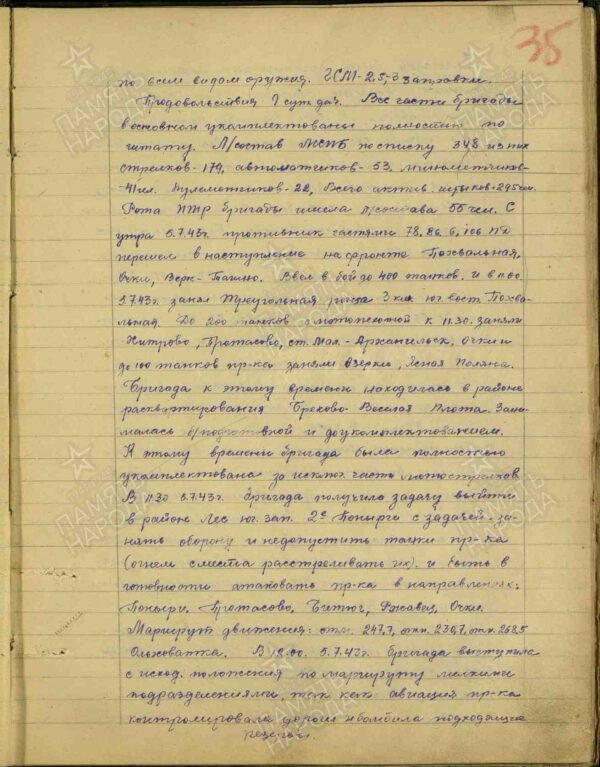 35
по всем видам оружия. ГСМ-2,5-3 заправки.
Продовольствия 7 сут. дач. Все части бригады
в основном укомплектованы полностью по
штату. Л/состав МСПБ по списку 348 из них
стрелков-179, автоматчиков-53, минометчиков-
-41 чел. пулеметчиков-22, Всего актив. штыков-295 чел.
Рота ПТР бригады имела л/состава 55 чел. С
утра 5.7.43г. противник частями 78, 86, 6, 106 ПД
перешел в наступление на фронте Похвальная,
Очки, Верх-Тагино. Ввел в бой до 400 танков. и в 11.00
5.7.43г. занял Треугольная роща 3 км юг. вост. Похва-
льная. До 200 танков с мотопехотой к 11.30. заняли
Хитрово, Протасово, ст. Мал.-Архангельск, Очки и
до 100 танков пр-ка заняли Озерки, Ясная Поляна.
Бригада к этому времени находилась в районе
расквартирования Брехово-Веселая Плота. Зани-
малась б/подготовкой и доукомплектованием.
К этому времени бригада была полностью
укомплектована за исключ. часть мотострелков
В 11.30 5.7.43г. бригада получила задачу выйти
в район Лес юг. зап. 2е Поныри с задачей-за-
нять оборону и недопустить танки пр-ка
(огнем с места расстреливать их). и быть в
готовности атаковать пр-ка в направлениях:
Поныри, Протасово, Битюг, Ржавец, Очки.
Маршрут движения: отм. 247,7, отм. 230,7, отм. 268,5
Ольховатка. В 12.00. 5.7.43г. бригада выступила
с исход. положения по маршруту мелкими
подразделениями, так как авиация пр-ка
контролировала дороги и бомбила подходящие
резервы.
ПАМЯТЬ
НАРОДА